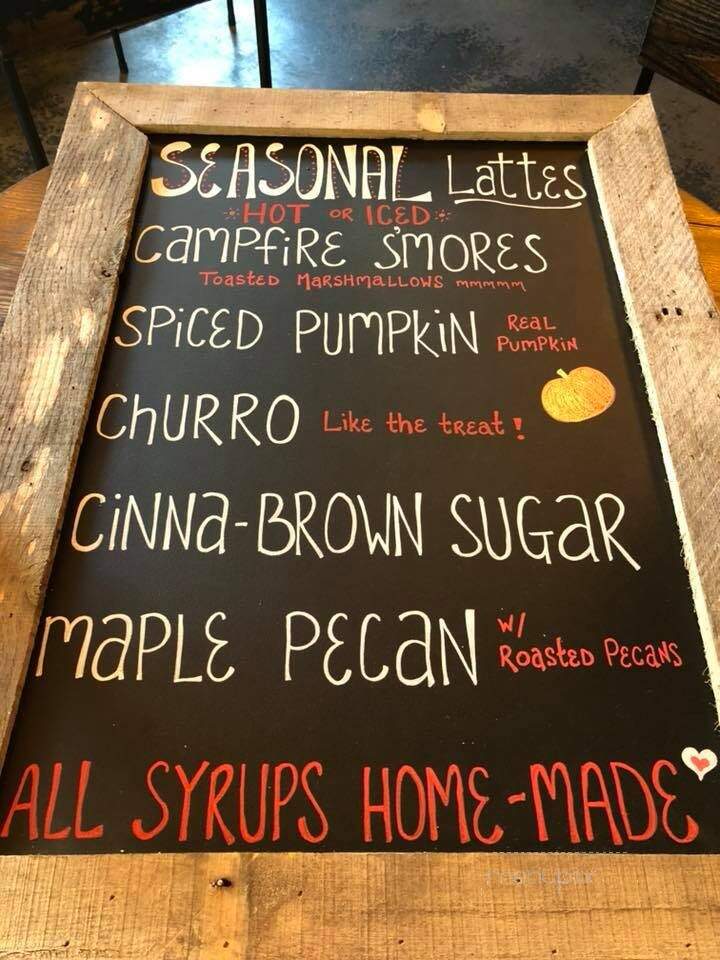 SEASONAL LattES
HOT OR ICED
CaMPfiRE S'MORES
ToastED MaRSHMaLLOWS mmmmm
SPiCED PUMPKiN REaL PUMPKiN
ChURRO Like the tREat!
CiNNa-BROWN SUGaR
MaPLE PECaN w/ RoastED PECaNS
ALL SYRUPS HOME-MADE